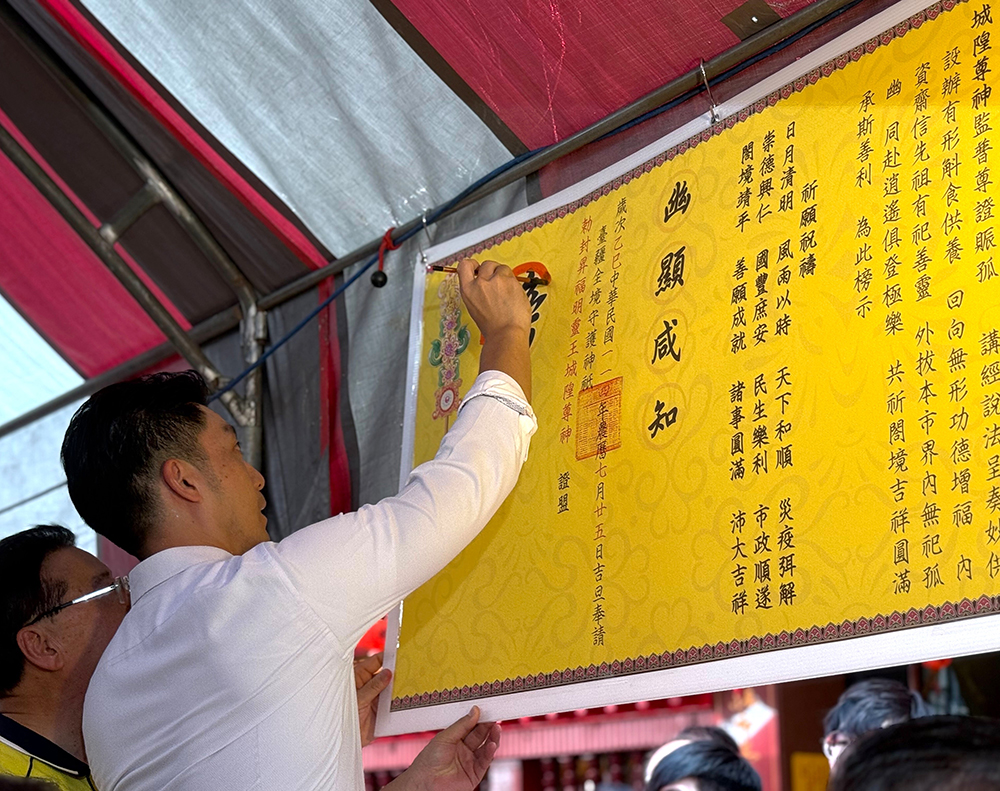 城隍尊神監普尊證賑孤
設辦有形斛食供養　講經說法呈奏妙供
資齋信先祖有祀善靈　回向無形功德增福　內
幽　同赴逍遙俱登極樂　外拔本市界內無祀孤
承斯善利　為此榜示　共祈閤境吉祥圓滿
祈願祝禱
日月清明　風雨以時　天下和順　災疫弭解
崇德興仁　國豐庶安　民生樂利　市政順遂
閤境靖平　善願成就　諸事圓滿　沛大吉祥
幽顯咸知
歲次乙巳中華民國一一四年農曆七月廿五日吉旦奉請
臺疆全境守護神祇
勅封昇福明靈王城隍尊神　證盟